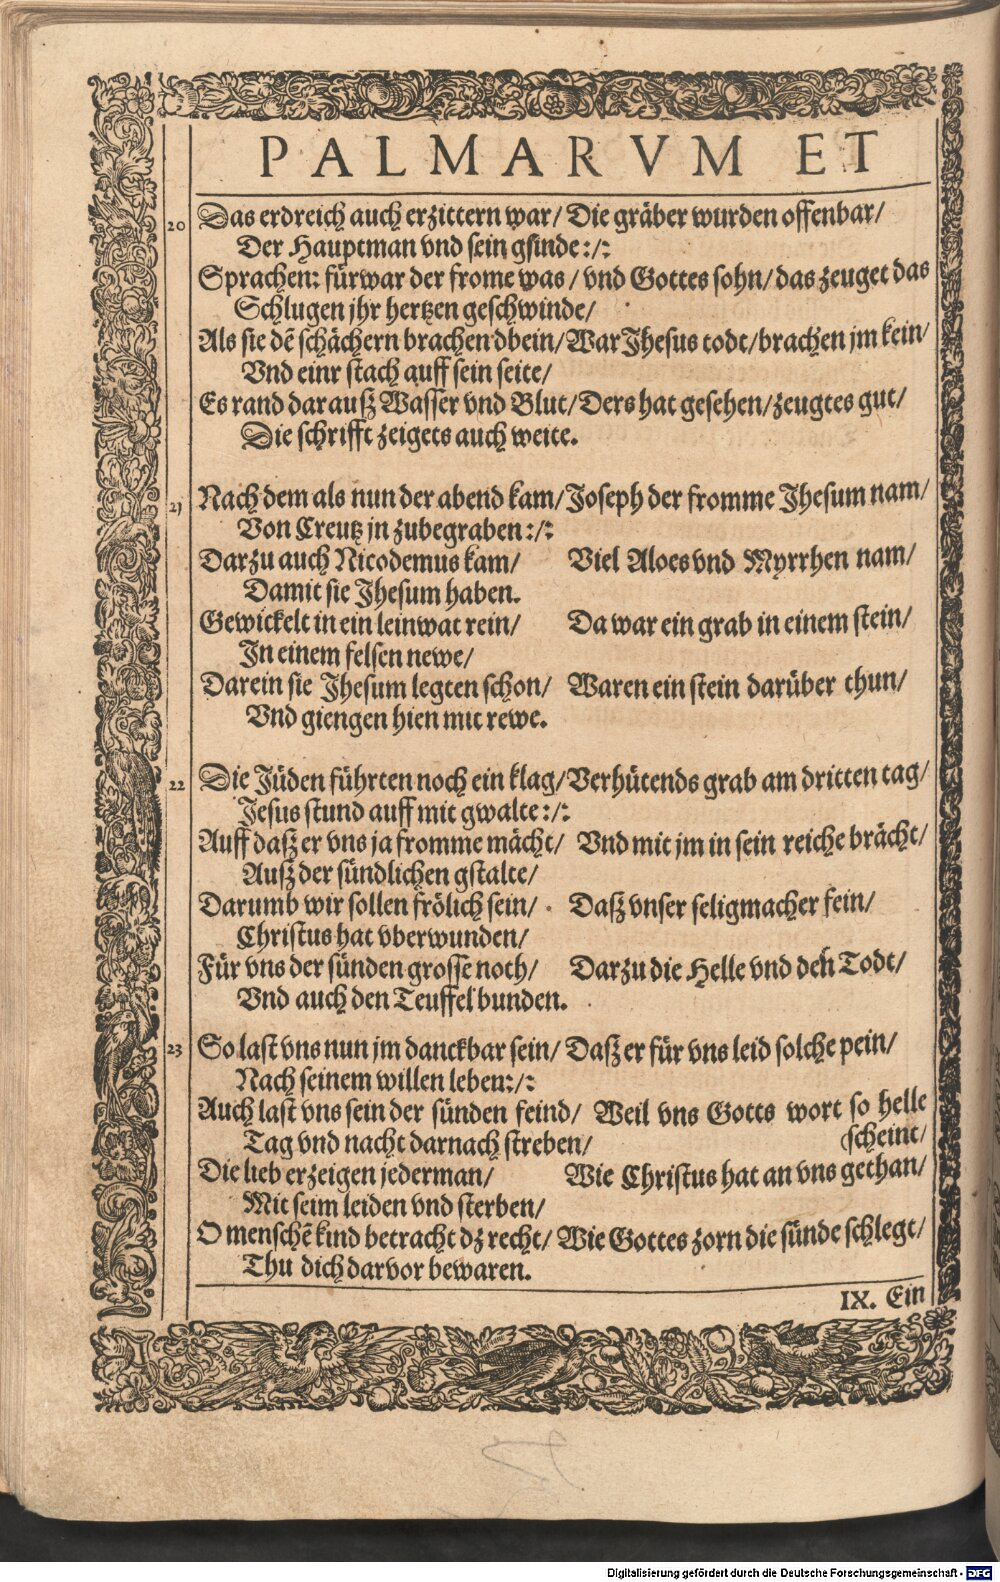 PALMARVM ET
20 Das erdreich auch erzittern war/ Die gräber wurden offenbar/
Der Hauptman vnd sein gsinde:/:
Sprachen: fürwar der frome was/ vnd Gottes sohn/ das zeuget das
Schlugen jhr hertzen geschwinde/
Als sie dẽ schächern brachen dbein/ War Jhesus todt/ brachen jm kein/
Vnd einr stach auff sein seite/
Es rand darauß Wasser vnd Blut/ Ders hat gesehen/ zeugtes gut/
Die schrifft zeigets auch weite.
21 Nach dem als nun der abend kam/ Joseph der fromme Jhesum nam/
Von Creutz jn zubegraben:/:
Darzu auch Nicodemus kam/ Viel Aloes vnd Myrrhen nam/
Damit sie Jhesum haben.
Gewickelt in ein leinwat rein/ Da war ein grab in einem stein/
In einem felsen newe/
Darein sie Jhesum legten schon/ Waren ein stein darüber thun/
Vnd giengen hien mit rewe.
22 Die Jüden führten noch ein klag/ Verhütends grab am dritten tag/
Jesus stund auff mit gwalte:/:
Auff daß er vns ja fromme mächt/ Vnd mit jm in sein reiche brächt/
Auß der sündlichen gstalte/
Darumb wir sollen frölich sein/ Daß vnser seligmacher fein/
Christus hat vberwunden/
Für vns der sünden grosse noth/ Darzu die Helle vnd den Todt/
Vnd auch den Teuffel bunden.
23 So last vns nun jm danckbar sein/ Daß er für vns leid solche pein/
Nach seinem willen leben:/:
Auch last vns sein der sünden feind/ Weil vns Gotts wort so helle
Tag vnd nacht darnach streben/ (scheint/
Die lieb erzeigen jederman/ Wie Christus hat an vns gethan/
Mit seim leiden vnd sterben/
O menschẽ kind betracht dz recht/ Wie Gottes zorn die sünde schlegt/
Thu dich darvor bewaren.
IX. Ein
Digitalisierung gefördert durch die Deutsche Forschungsgemeinschaft - DFG